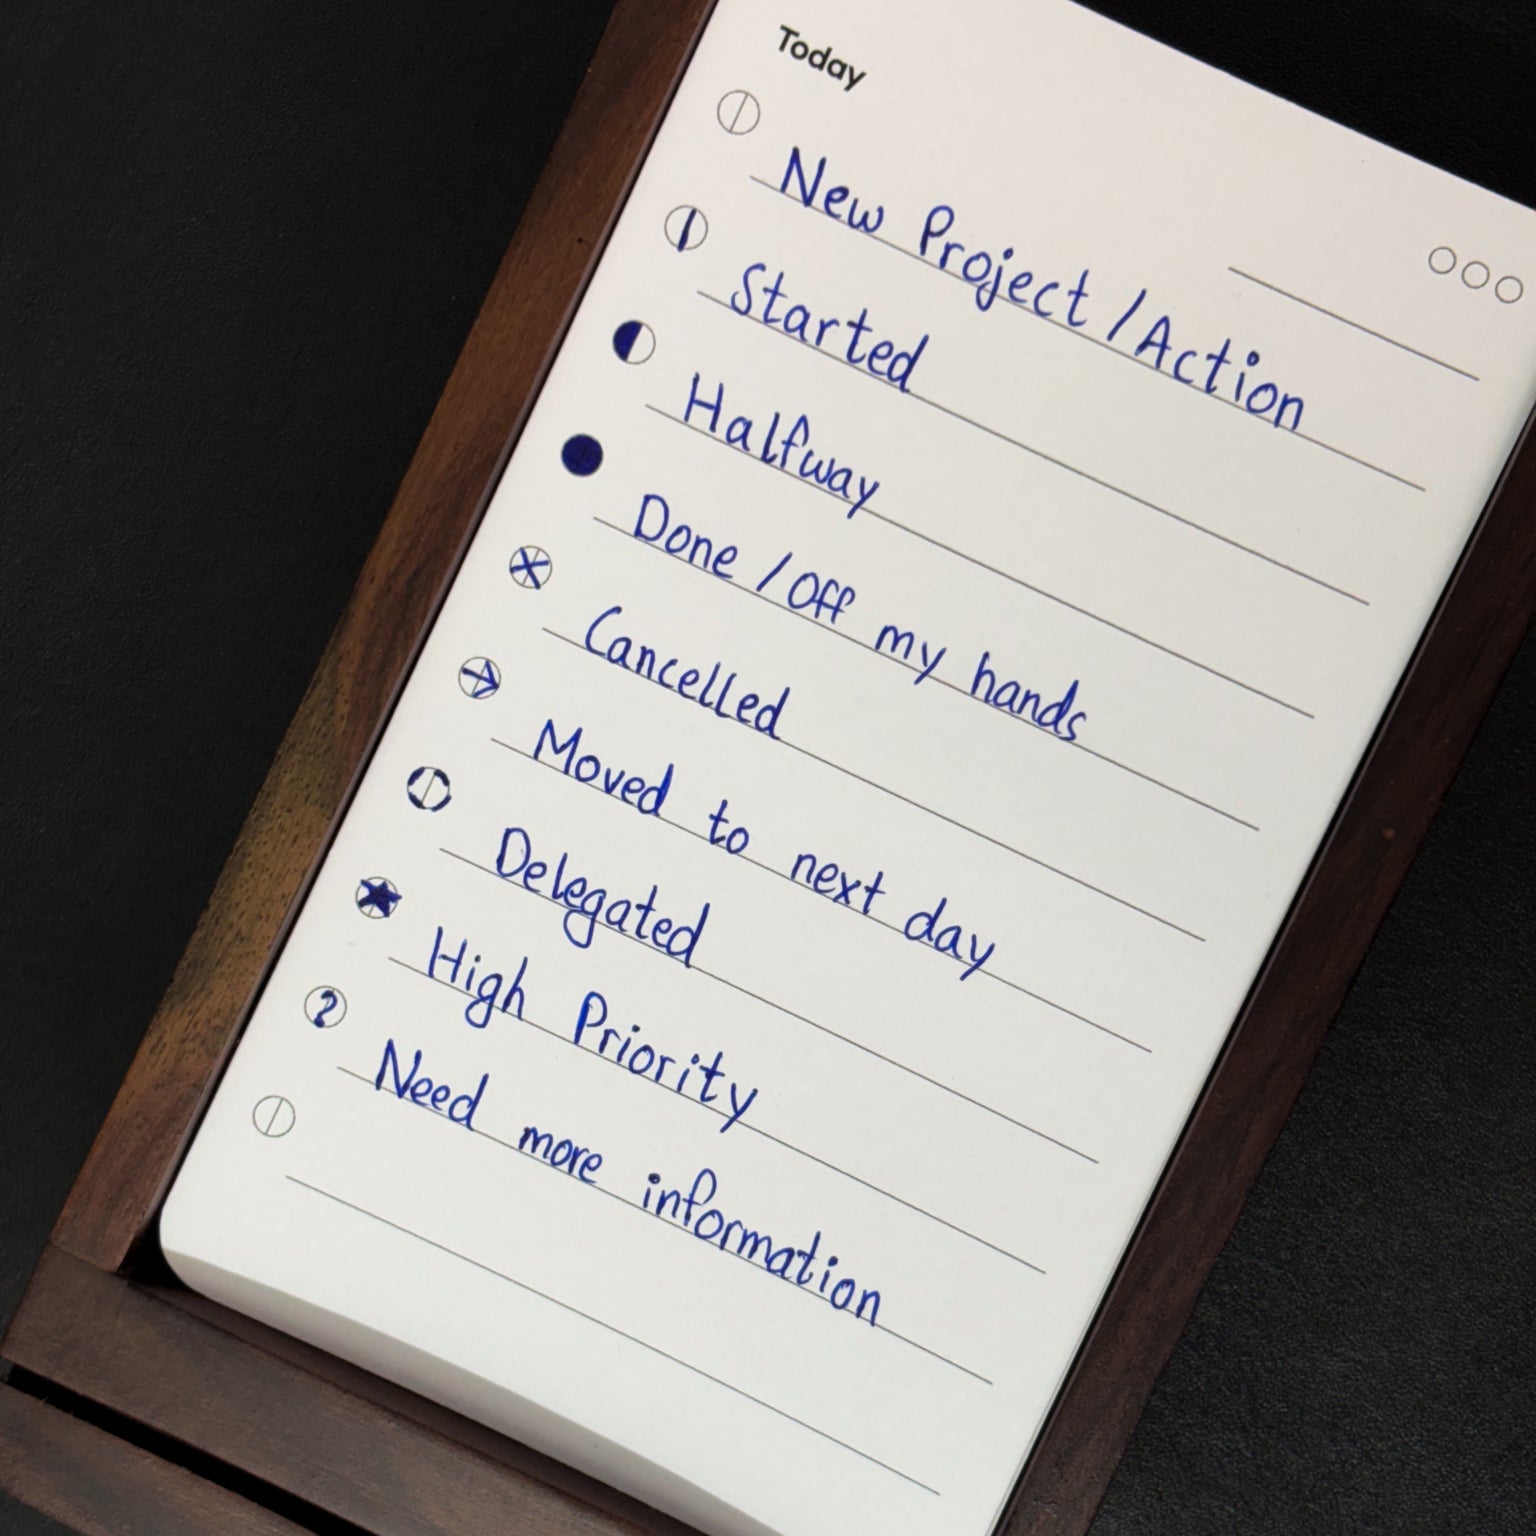 Today
New Project / Action
Started
Halfway
Done / Off my hands
Cancelled
Moved to next day
Delegated
High Priority
? Need more information